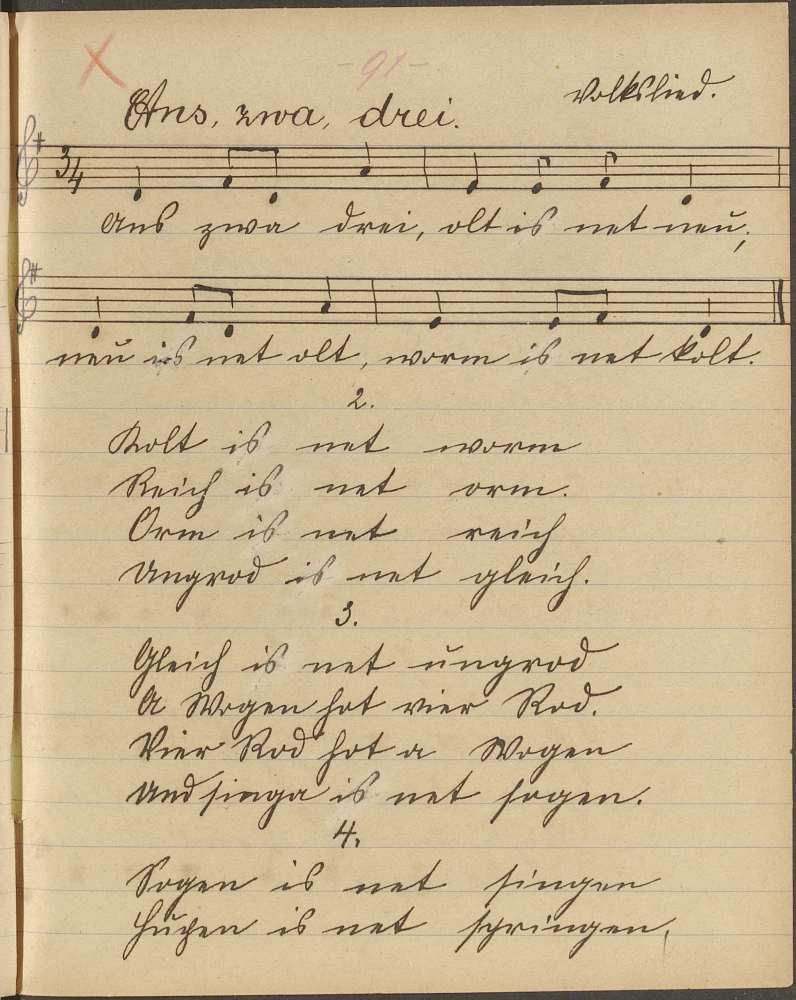 - 91 -
Ans, zwa, drei.
Volkslied.
3/4
Ans zwa drei, olt is net neu;
neu is net olt, worm is net kolt.
2.
Kolt is net worm
Reich is net orm.
Orm is net reich
Ungrod is net gleich.
3.
Gleich is net ungrod
A Wogen hot vier Rod.
Vier Rod hot a Wogen
Und singa is net sogen.
4.
Sogen is net singen
is net springen,